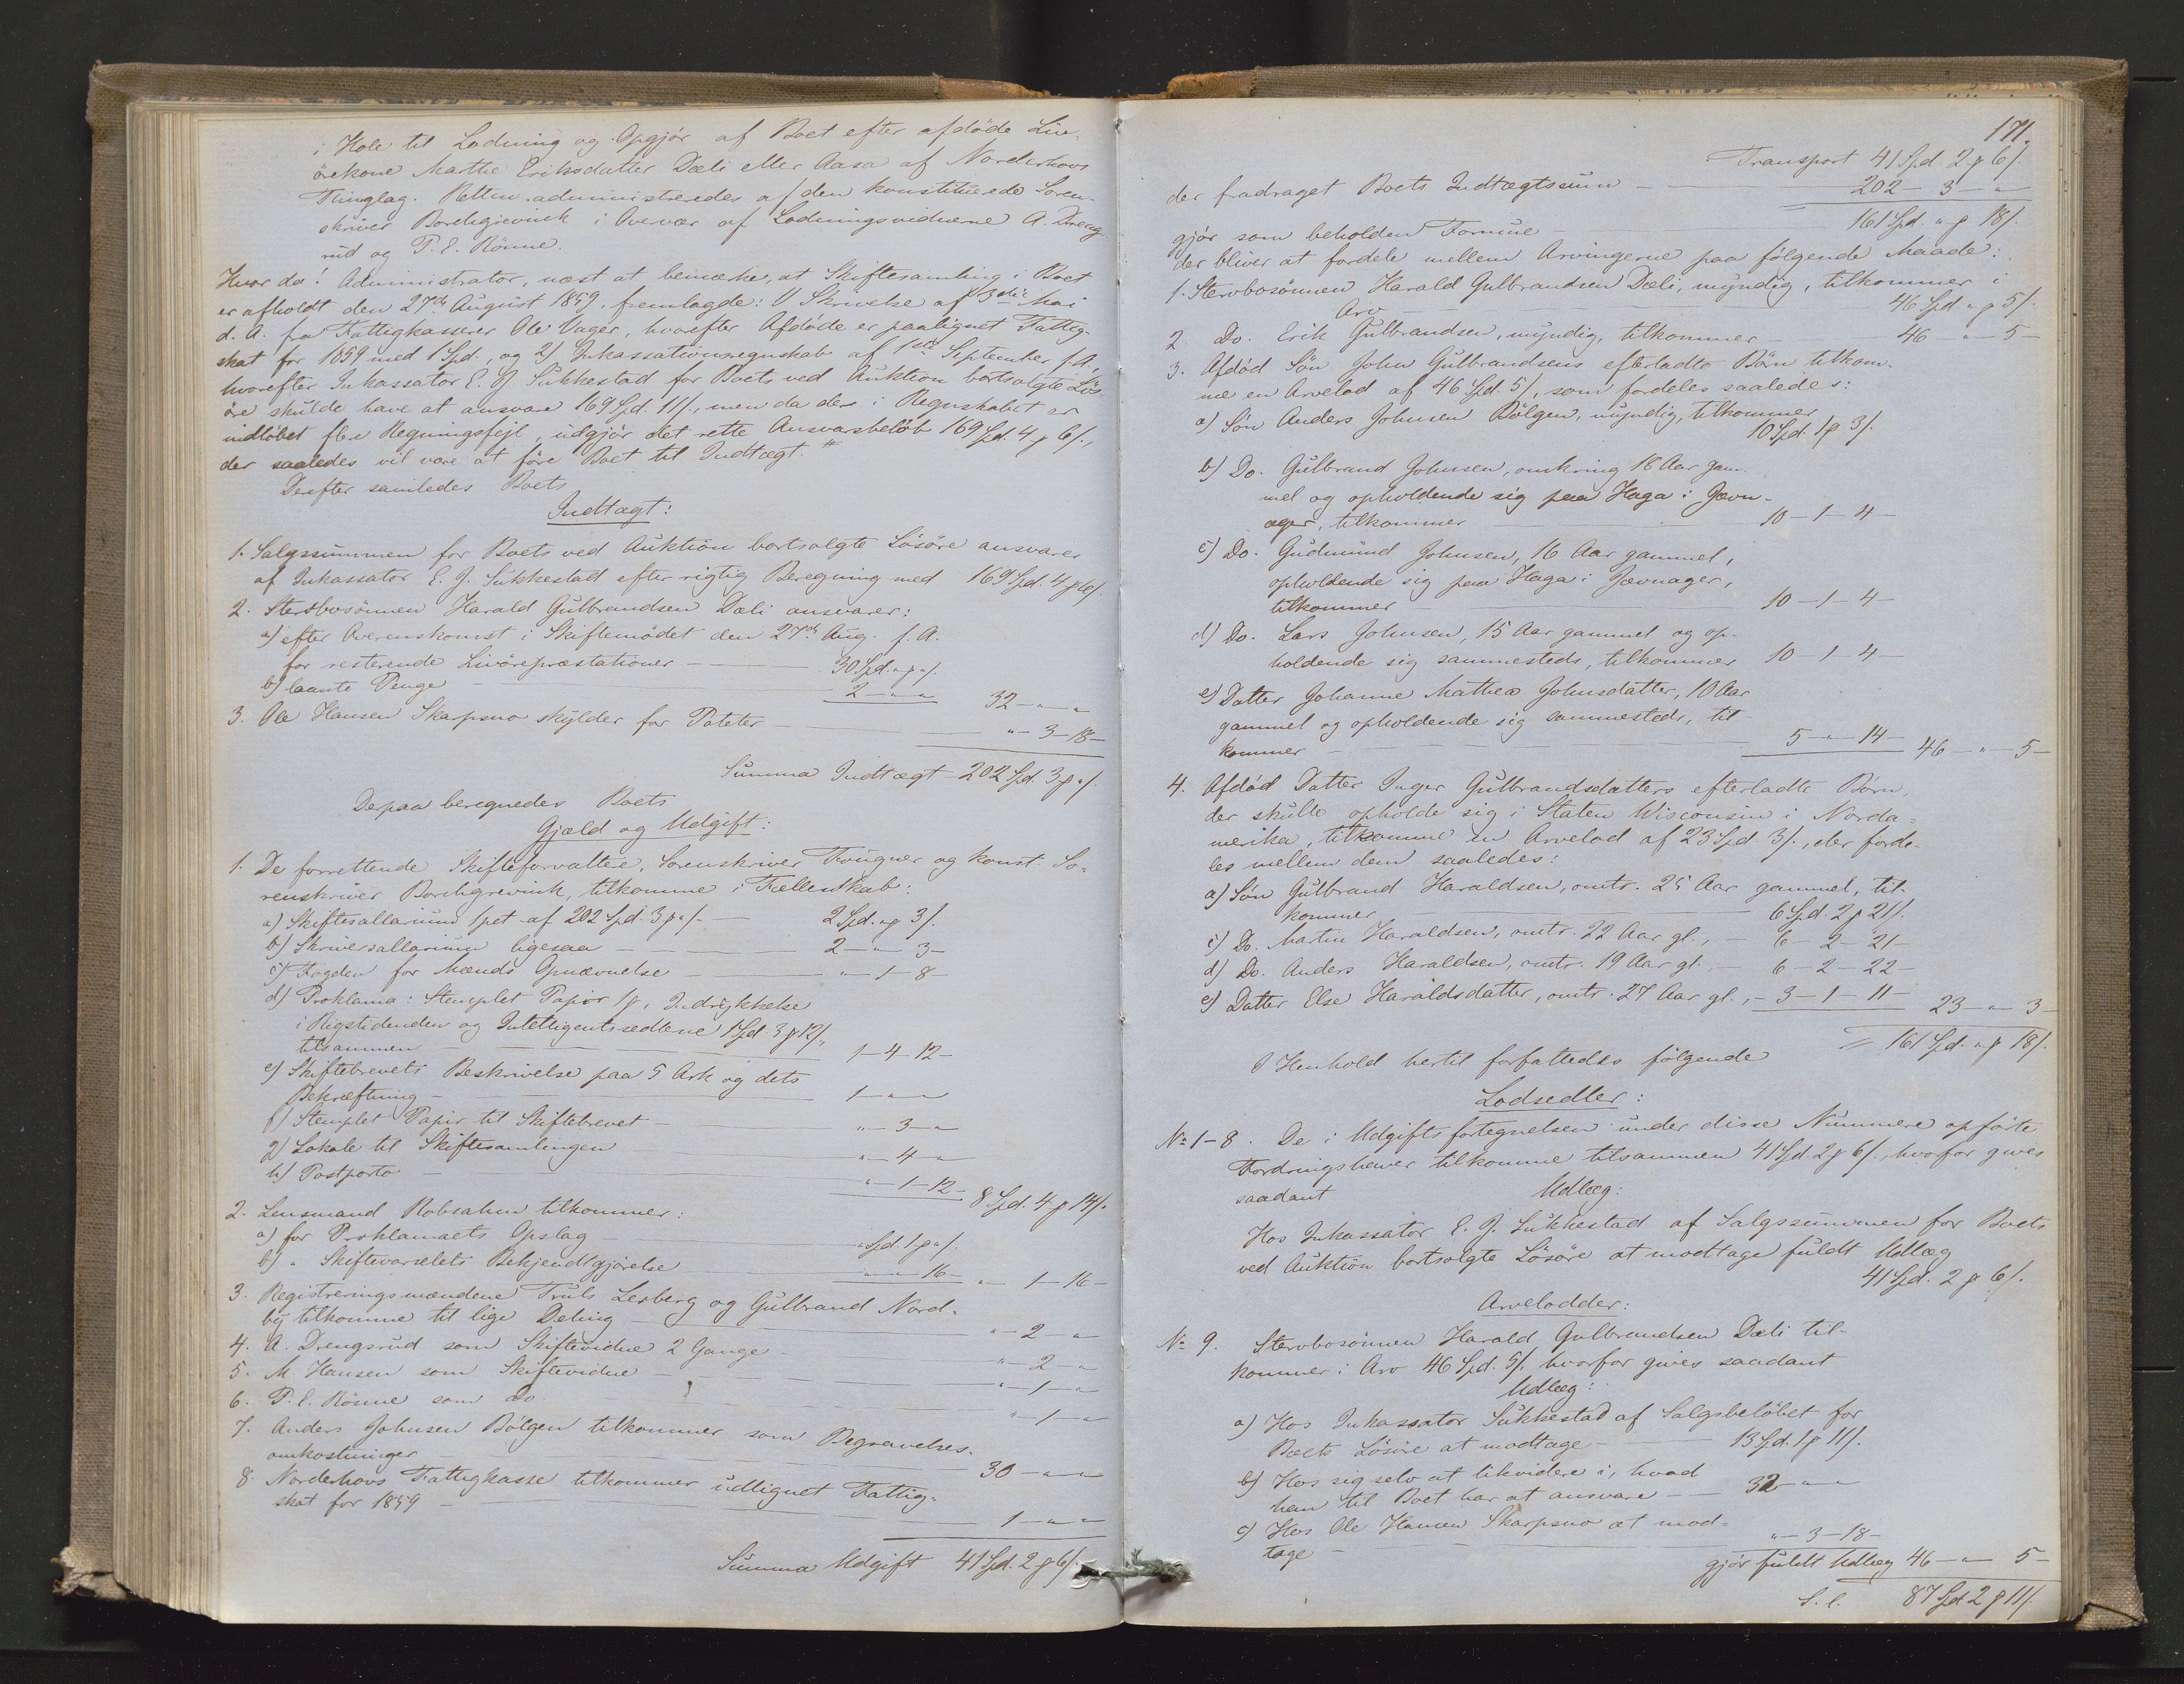 i Hole til Lodning og Opgjør af Boet efter afdøde Liv-
ørekone Marthe Eriksdatter Dæli eller Aasa af Norderhovs
Thinglag. Retten administreredes af den konstituerede Soren-
skriver Borchgrevink i Overvær af Lodningsvidnerne A. Dreng
rud og P. E. Rönne.
Hvor da! Administrator, næst at bemærke, at Skiftesamling i Boet
er afholdt den 27de August 1859, fremlagde: 1) Skrivelse af 3die Mai
d. A. fra Fattigkasserer Ole Vager, hvorefter Afdøde er paalignet Fattig-
skat for 1859 med 1 Spd., og 2) Inkassationsregnskab af 1ste September f. A.,
hvorefter Inkassator E. G. Sukkestad for Boets ved Auktion bortsolgte Løs-
øre skulde have at ansvare 169 Spd. 11 ß., men da der i Regnskabet er
indløbet flere Regningsfejl, udgjør det rette Ansvarsbeløb 169 Spd. 4 ꝑ 6 ß.,
der saaledes vil være at føre Boet til Indtægt.
Derefter samledes Boets
Indtægt:
1. Salgssummen for Boets ved Auktion bortsolgte Løsøre ansvares
af Inkassator E. G. Sukkestad efter rigtig Beregning med 169 Spd. 4 ꝑ 6 ß.
2. Stervbosønnen Harald Gulbrandsen Dæli ansvarer:
a) efter Overenskomst i Skiftemødet den 27de Aug. f. A.
for resterende Livörepræstationer — 30 Spd. " ꝑ " ß.
b) laante Penge — 2 — " — " 32 — " — "
3. Ole Hansen Skarpsno skylder for Poteter — " — 3 — 18 —
Summa Indtægt 202 Spd. 3 ꝑ " ß.
Derpaa beregnedes Boets
Gjæld og Udgift:
1. De forrettende Skifteforvaltere, Sorenskriver Fougner og konst. So-
renskriver Borchgrevink, tilkomme i Fællesskab:
a) Skiftesallarium 1 pct. af 202 Spd. 3 ꝑ " ß. — 2 Spd. " ꝑ 3 ß.
b) Skriversallarium ligesaa — 2 — " — 3 —
c) Fogden for Mænds Opnævnelse — " — 1 — 8 —
d) Proklama: Stemplet Papir 1 ꝑ, Indrykkelse
i Rigstidenden og Intelligentssedlerne 1 Spd. 3 ꝑ 12 ß.,
tilsammen — 1 — 4 — 12 —
e) Skiftebrevets Beskrivelse paa 5 Ark og dets
Bekræftning — 1 — " — "
f) Stemplet Papir til Skiftebrevet — " — 3 — "
g) Lokale til Skiftesamlingen — " — 4 — "
h) Postporto — " — 1 — 12 — 8 Spd. 4 ꝑ 14 ß.
2. Lensmand Robsahm tilkommer:
a) for Proklamaets Opslag — " Spd. 1 ꝑ " ß.
b) " Skiftevarselets Bekjendtgjørelse — " — " — 16 — " — 1 — 16 —
3. Registreringsmændene Truls Lesberg og Gulbrand Nord-
by tilkomme til lige Deling — " — 2 — "
4. A. Drengsrud som Skiftevidne 2 Gange — " — 2 — "
5. M. Hansen som Skiftevidne — " — 1 — "
6. P. E. Rönne som do. — " — 1 — "
7. Anders Johnsen Bölgen tilkommer som Begravelses-
omkostninger — 30 — " — "
8. Norderhovs Fattigkasse tilkommer udlignet Fattig-
skat for 1859 — 1 — " — "
Summa Udgift 41 Spd. 2 ꝑ 6 ß.
171.
Transport 41 Spd. 2 ꝑ 6 ß.
der fradraget Boets Indtægtssum — 202 — 3 — "
gjør som beholden Formue — 161 Spd. " ꝑ 18 ß.
der bliver at fordele mellem Arvingerne paa følgende Maade:
1. Stervbosønnen Harald Gulbrandsen Dæli, myndig, tilkommer i
Arv — 46 Spd. " ꝑ 5 ß.
2. Do. Erik Gulbrandsen, myndig, tilkommer — 46 — " — 5 —
3. Afdød Søn John Gulbrandsens efterladte Børn tilkom-
me en Arvelod af 46 Spd. 5 ß., som fordeles saaledes:
a) Søn Anders Johnsen Bölgen, myndig, tilkommer
10 Spd. 1 ꝑ 3 ß.
b) Do. Gulbrand Johnsen, omkring 18 Aar gam-
mel og opholdende sig paa Haga i Jævn-
ager, tilkommer — 10 — 1 — 4 —
c) Do. Gudmund Johnsen, 16 Aar gammel,
opholdende sig paa Haga i Jævnager,
tilkommer — 10 — 1 — 4 —
d) Do. Lars Johnsen, 15 Aar gammel og op-
holdende sig sammesteds, tilkommer 10 — 1 — 4 —
e) Datter Johanne Mathea Johnsdatter, 10 Aar
gammel og opholdende sig sammesteds, til-
kommer — 5 — " — 14 — 46 — " — 5 —
4. Afdød Datter Inger Gulbrandsdatters efterladte Børn,
der skulle opholde sig i Staten Wisconsin i Norda-
merika, tilkomme en Arvelod af 23 Spd. 3 ß., der forde-
les mellem dem saaledes:
a) Søn Gulbrand Haraldsen, omtr. 25 Aar gammel, til-
kommer — 6 Spd. 2 ꝑ 21 ß.
c) Do. Martin Haraldsen, omtr. 22 Aar gl., — 6 — 2 — 21 —
d) Do. Anders Haraldsen, omtr. 19 Aar gl., — 6 — 2 — 22 —
e) Datter Else Haraldsdatter, omtr. 27 Aar gl., — 3 — 1 — 11 — 23 — " — 3 —
= 161 Spd. " ꝑ 18 ß.
I Henhold hertil forfattedes følgende
Lodsedler:
No 1-8. De i Udgiftsfortegnelsen under disse Nummere opførte
Fordringshavere tilkomme tilsammen 41 Spd. 2 ꝑ 6 ß., hvorfor gives
saadant Udlæg:
Hos Inkassator E. G. Sukkestad af Salgssummen for Boets
ved Auktion bortsolgte Løsøre at modtage fuldt Udlæg
41 Spd. 2 ꝑ 6 ß.
Arvelodder:
No 9. Stervbosønnen Harald Gulbrandsen Dæli til-
kommer i Arv 46 Spd. 5 ß. hvorfor gives saadant
Udlæg:
a) Hos Inkassator Sukkestad af Salgsbeløbet for
Boets Løsøre at modtage — 13 Spd. 1 ꝑ 11 ß.
b) Hos sig selv at likvidere i, hvad
han til Boet har at ansvare — 32 — " — "
c) Hos Ole Hansen Skarpsno at mod-
tage — " — 3 — 18 —
gjør fuldt Udlæg 46 — " — 5 —
S. l. 87 Spd 2 ꝑ 11 ß.